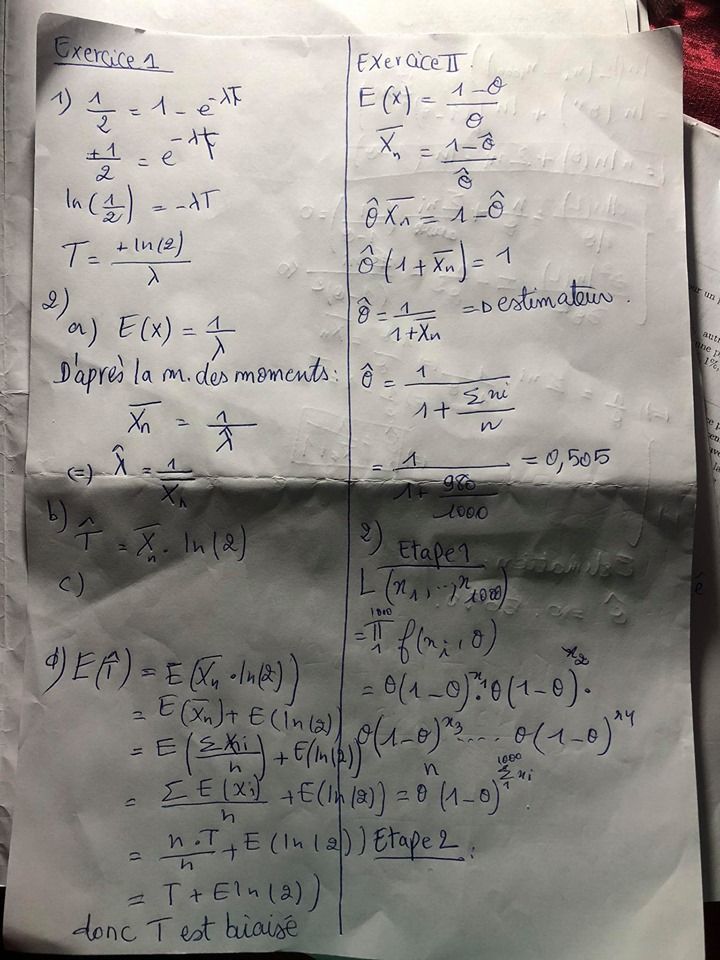 Exercice 1
1) 1/2 = 1 - e^-λT
+1/2 = e^-λT
ln(1/2) = -λT
T = +ln(2)/λ
2)
a) E(x) = 1/λ
D'après la m. des moments:
X̄n = 1/λ̂
(=) λ̂ = 1/X̄n
b) T̂ = X̄n · ln(2)
c)
d) E(T̂) = E(X̄n · ln(2))
= E(X̄n) + E(ln(2))
= E(ΣXi/n) + E(ln(2))
= ΣE(xi)/n + E(ln(2))
= n·T/n + E(ln(2))
= T + E ln(2))
donc T est biaisé
Exercice II.
E(x) = 1-θ/θ
X̄n = 1-θ̂/θ̂
θ̂ X̄n = 1-θ̂
θ̂(1+X̄n) = 1
θ̂ = 1/1+X̄n => Estimateur.
θ̂ = 1/1+Σxi/n
= 1/1+980/1000 = 0,505
2) Etape 1
L(x1, ..., x1000)
= 1000 Π 1 f(xi, θ)
= θ(1-θ)^x1 · θ(1-θ)^x2 ·
θ(1-θ)^x3 .... θ(1-θ)^x4
= θ^n (1-θ)^1000 Σ 1 xi
Etape 2: